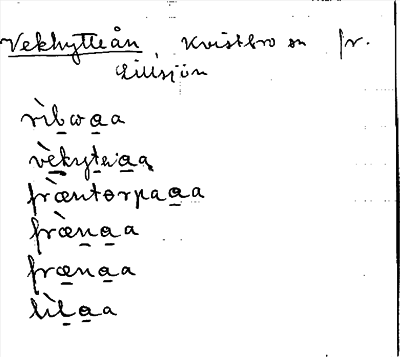 Vekhytteån, Kvistbro sn fr.
Lillsjön
rìlwaa
vèkytaaa
fræntorpaaa
frænaa
frænaa
lìlaa